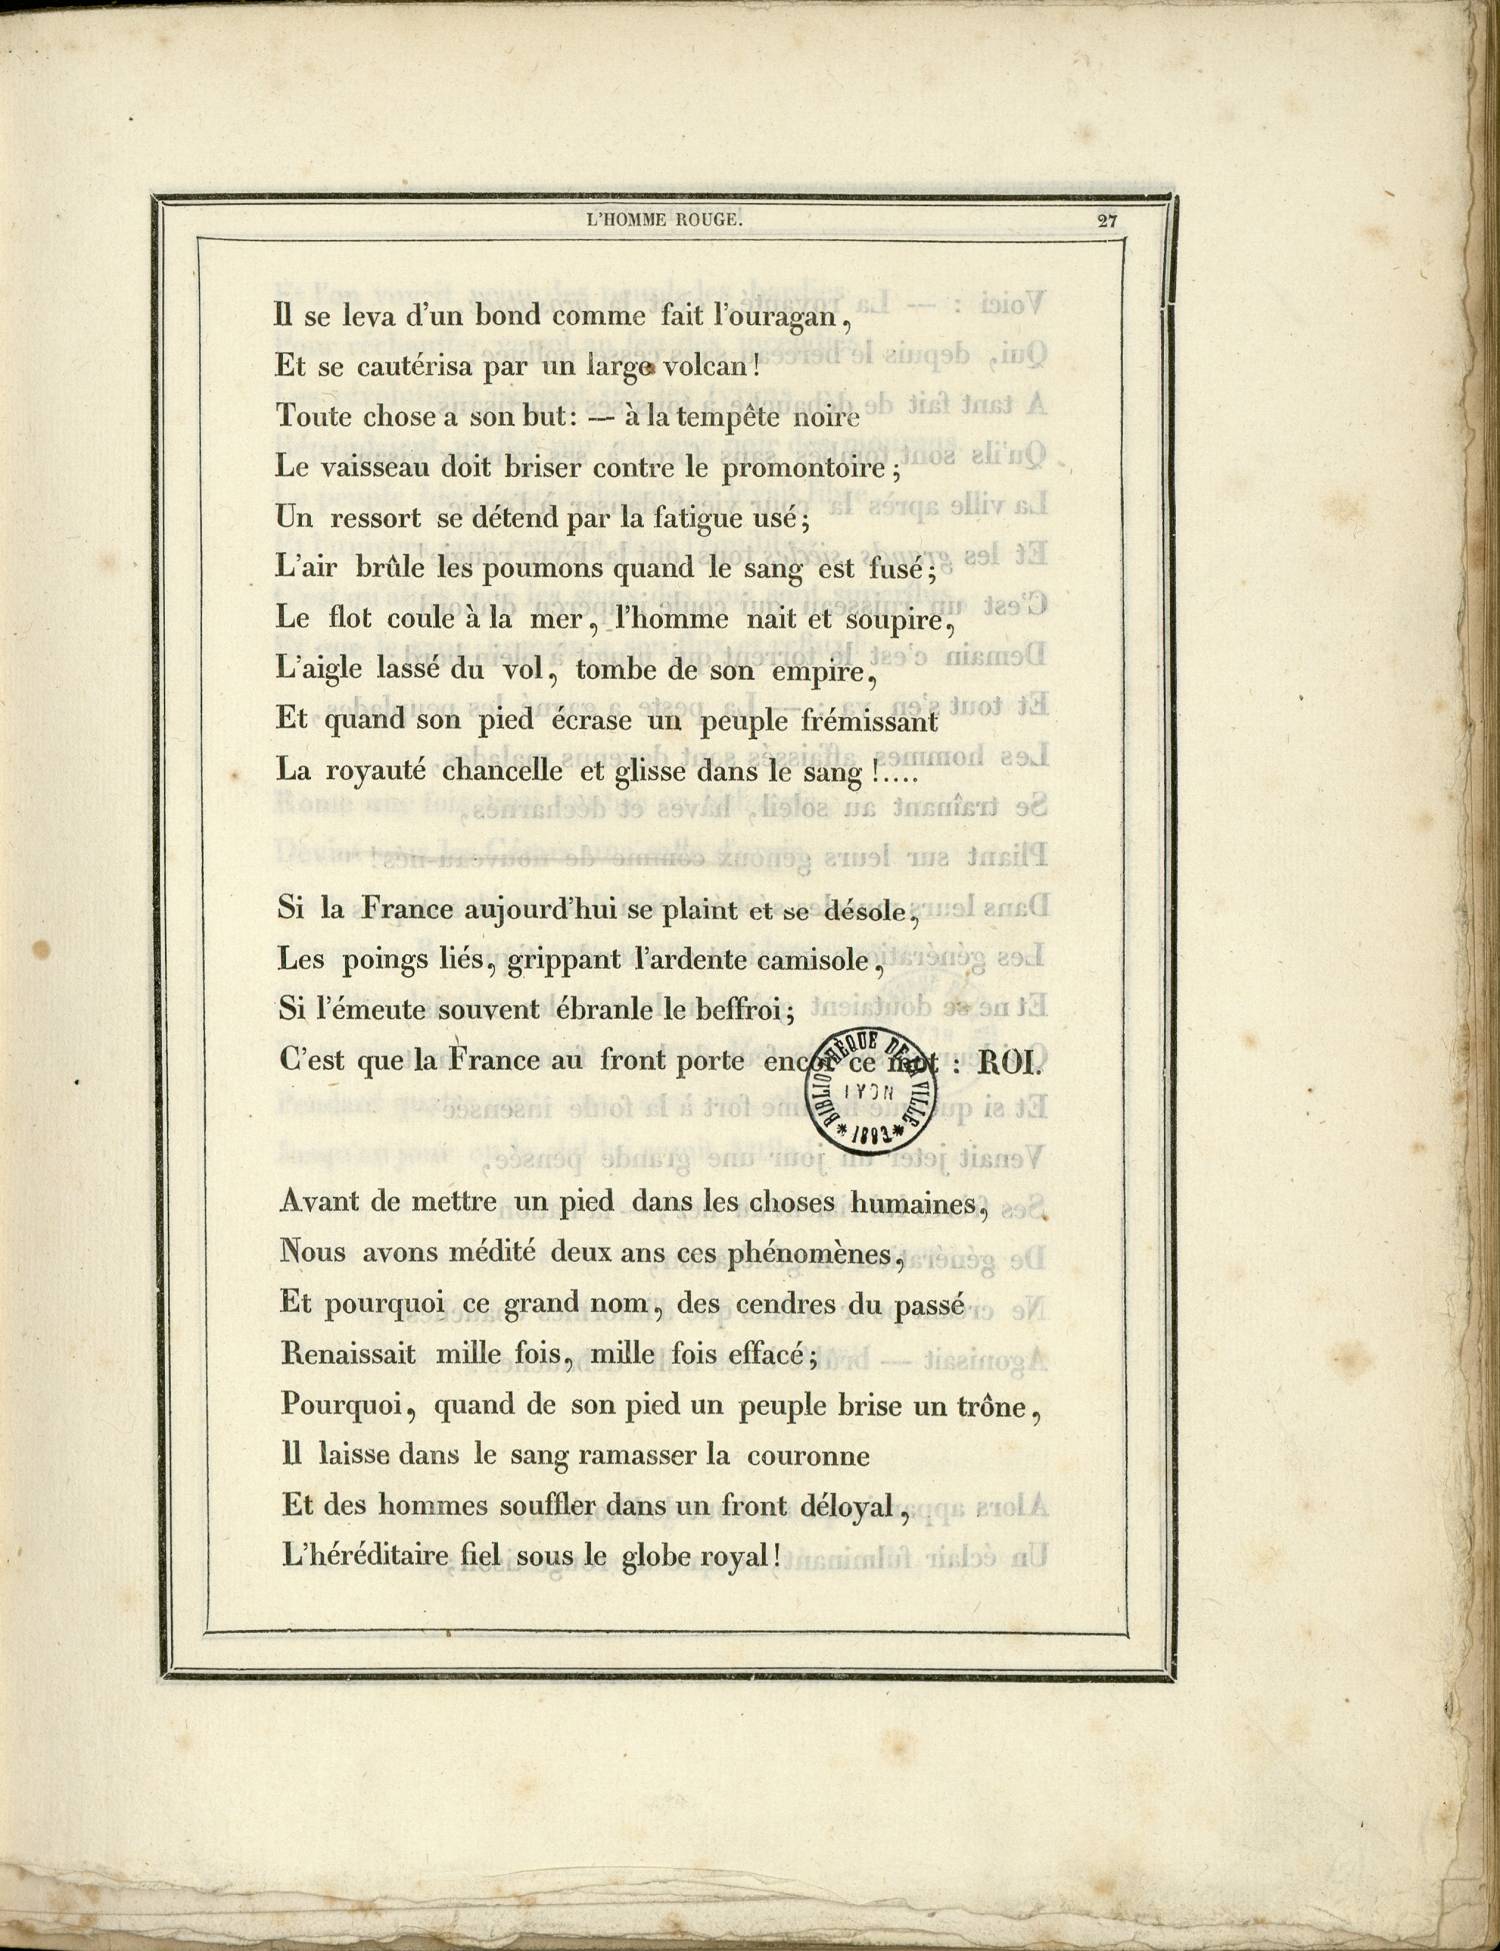 L'HOMME ROUGE. 27
Il se leva d'un bond comme fait l'ouragan,
Et se cautérisa par un large volcan!
Toute chose a son but: — à la tempête noire
Le vaisseau doit briser contre le promontoire;
Un ressort se détend par la fatigue usé;
L'air brûle les poumons quand le sang est fusé;
Le flot coule à la mer, l'homme nait et soupire,
L'aigle lassé du vol, tombe de son empire,
Et quand son pied écrase un peuple frémissant
La royauté chancelle et glisse dans le sang!....
Si la France aujourd'hui se plaint et se désole,
Les poings liés, grippant l'ardente camisole,
Si l'émeute souvent ébranle le beffroi;
C'est que la France au front porte encor ce mot : ROI.
BIBLIOTHÈQUE DE LA VILLE
LYON
* 1893 *
Avant de mettre un pied dans les choses humaines,
Nous avons médité deux ans ces phénomènes,
Et pourquoi ce grand nom, des cendres du passé
Renaissait mille fois, mille fois effacé;
Pourquoi, quand de son pied un peuple brise un trône,
Il laisse dans le sang ramasser la couronne
Et des hommes souffler dans un front déloyal,
L'héréditaire fiel sous le globe royal!